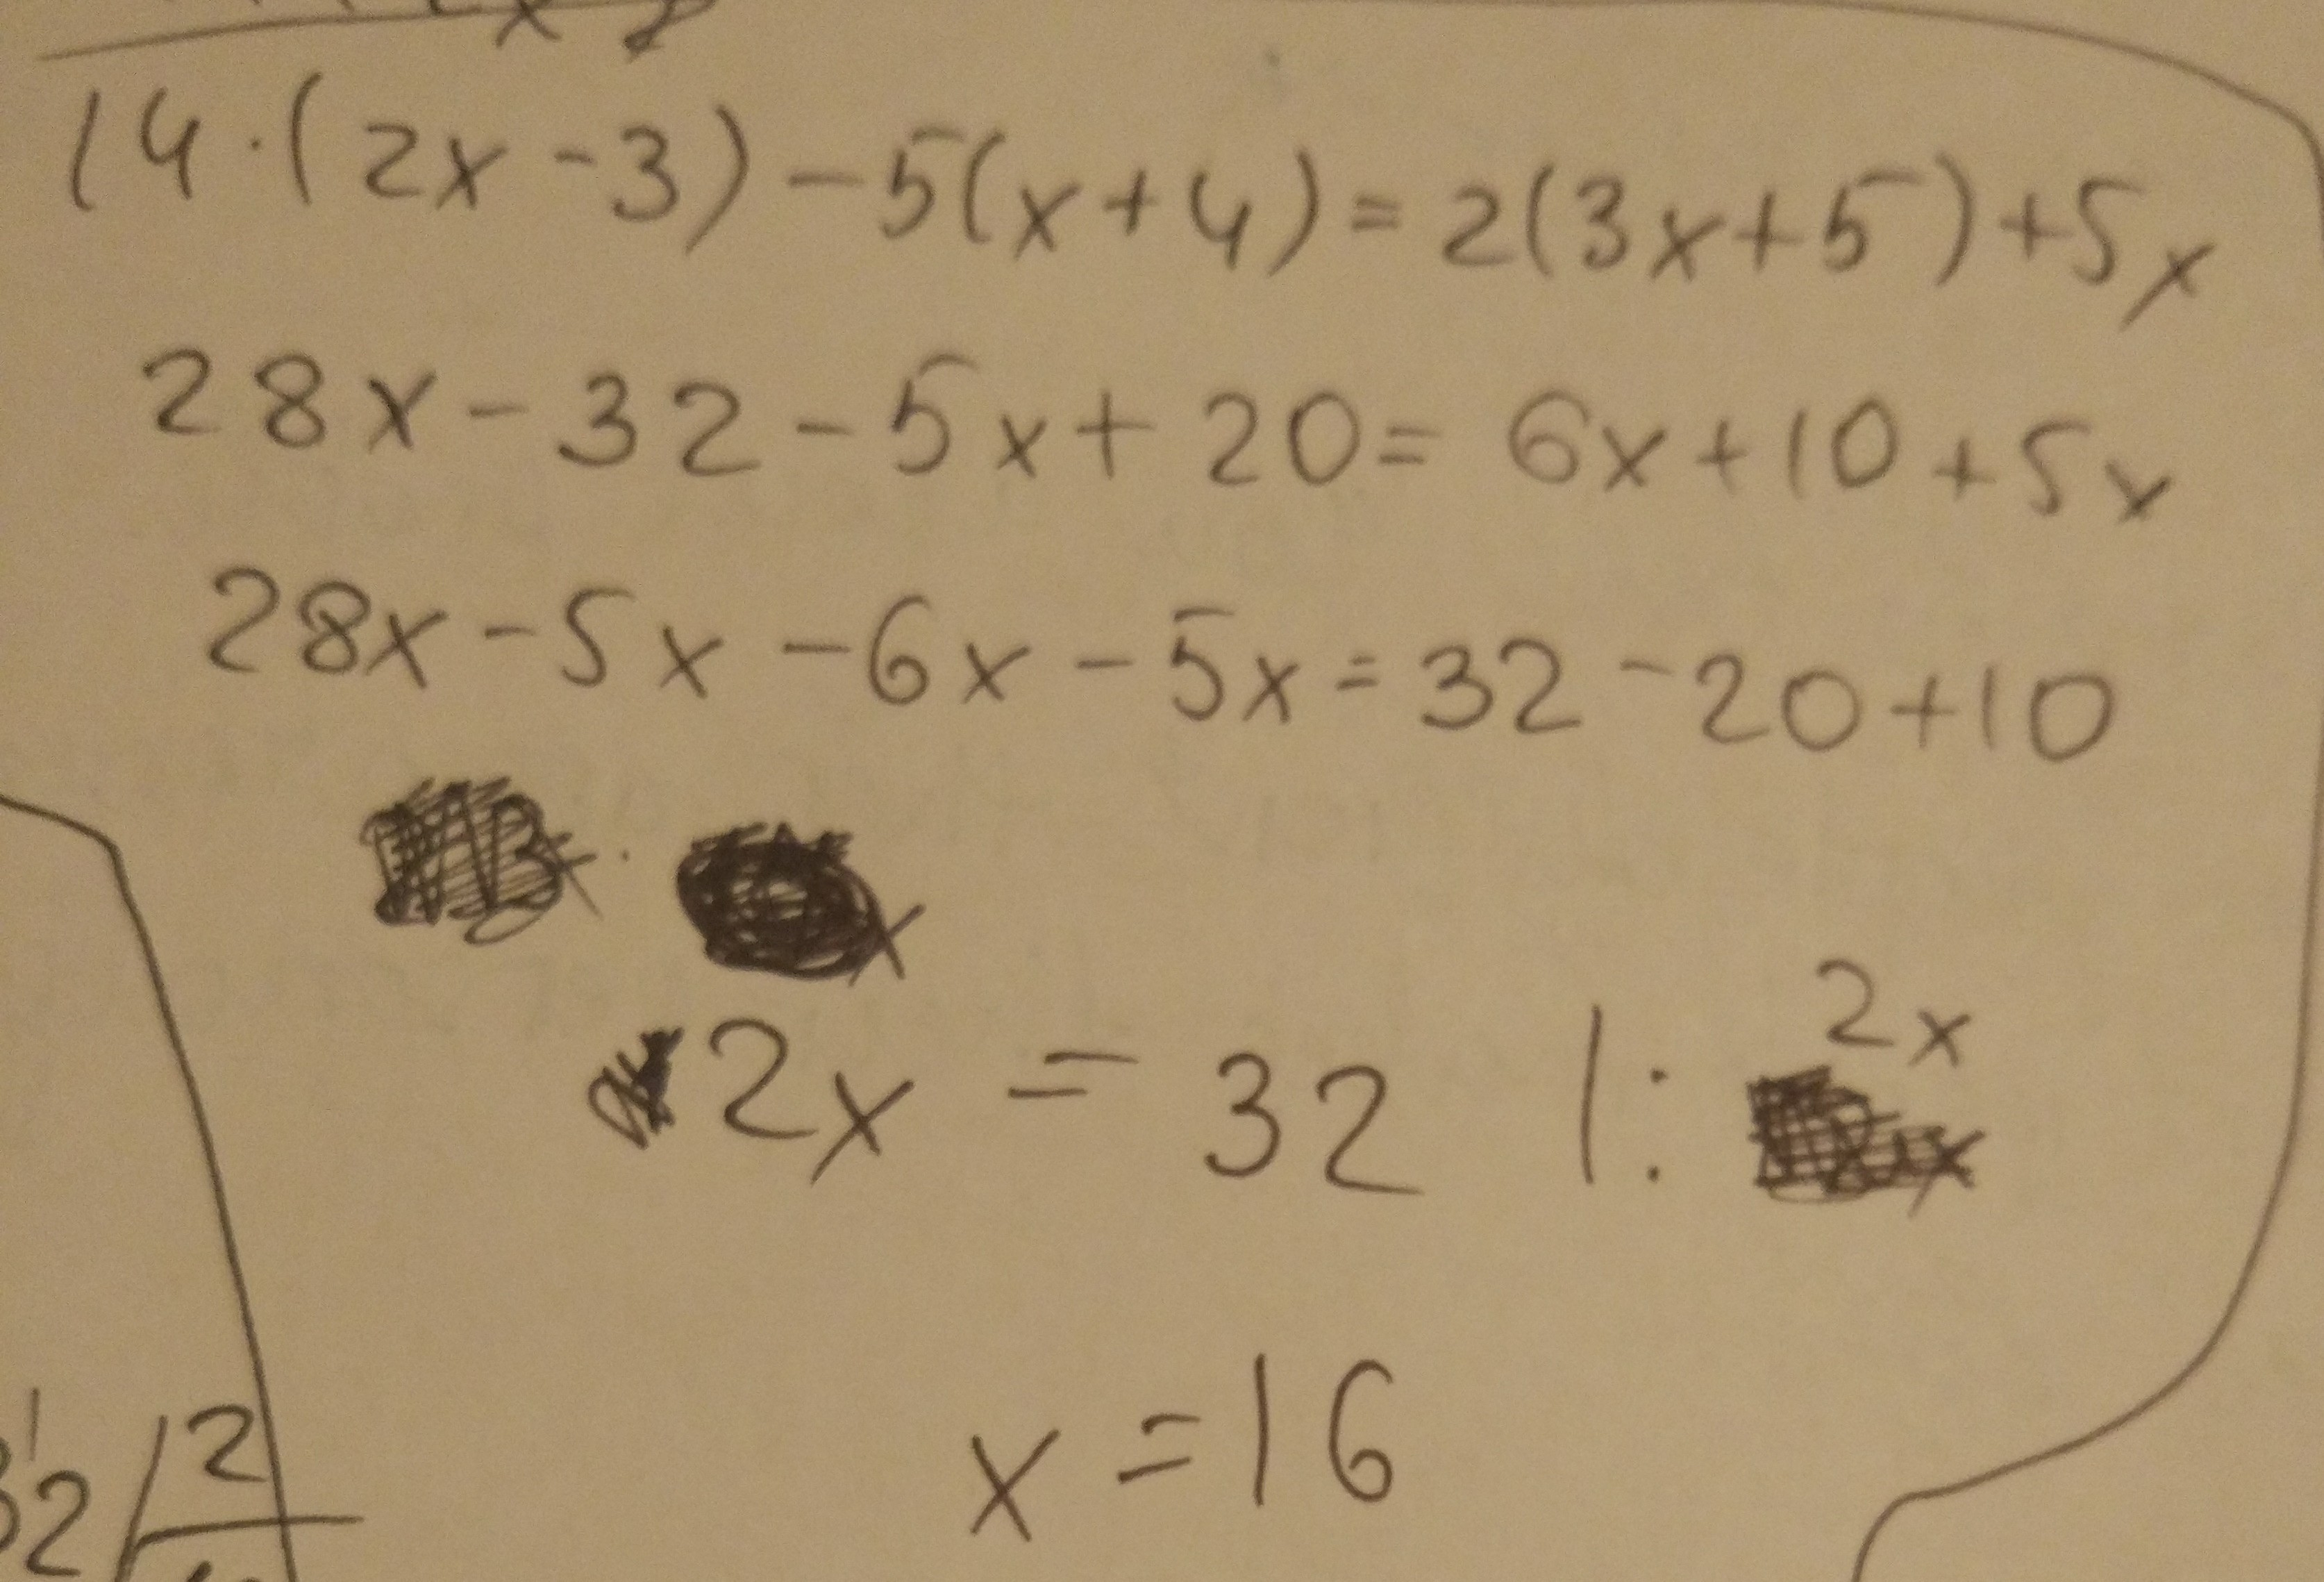 14·(2x-3)-5(x+4)=2(3x+5)+5x
28x-32-5x+20=6x+10+5x
28x-5x-6x-5x=32-20+10
2x=32 |: 2x
x=16
2
32